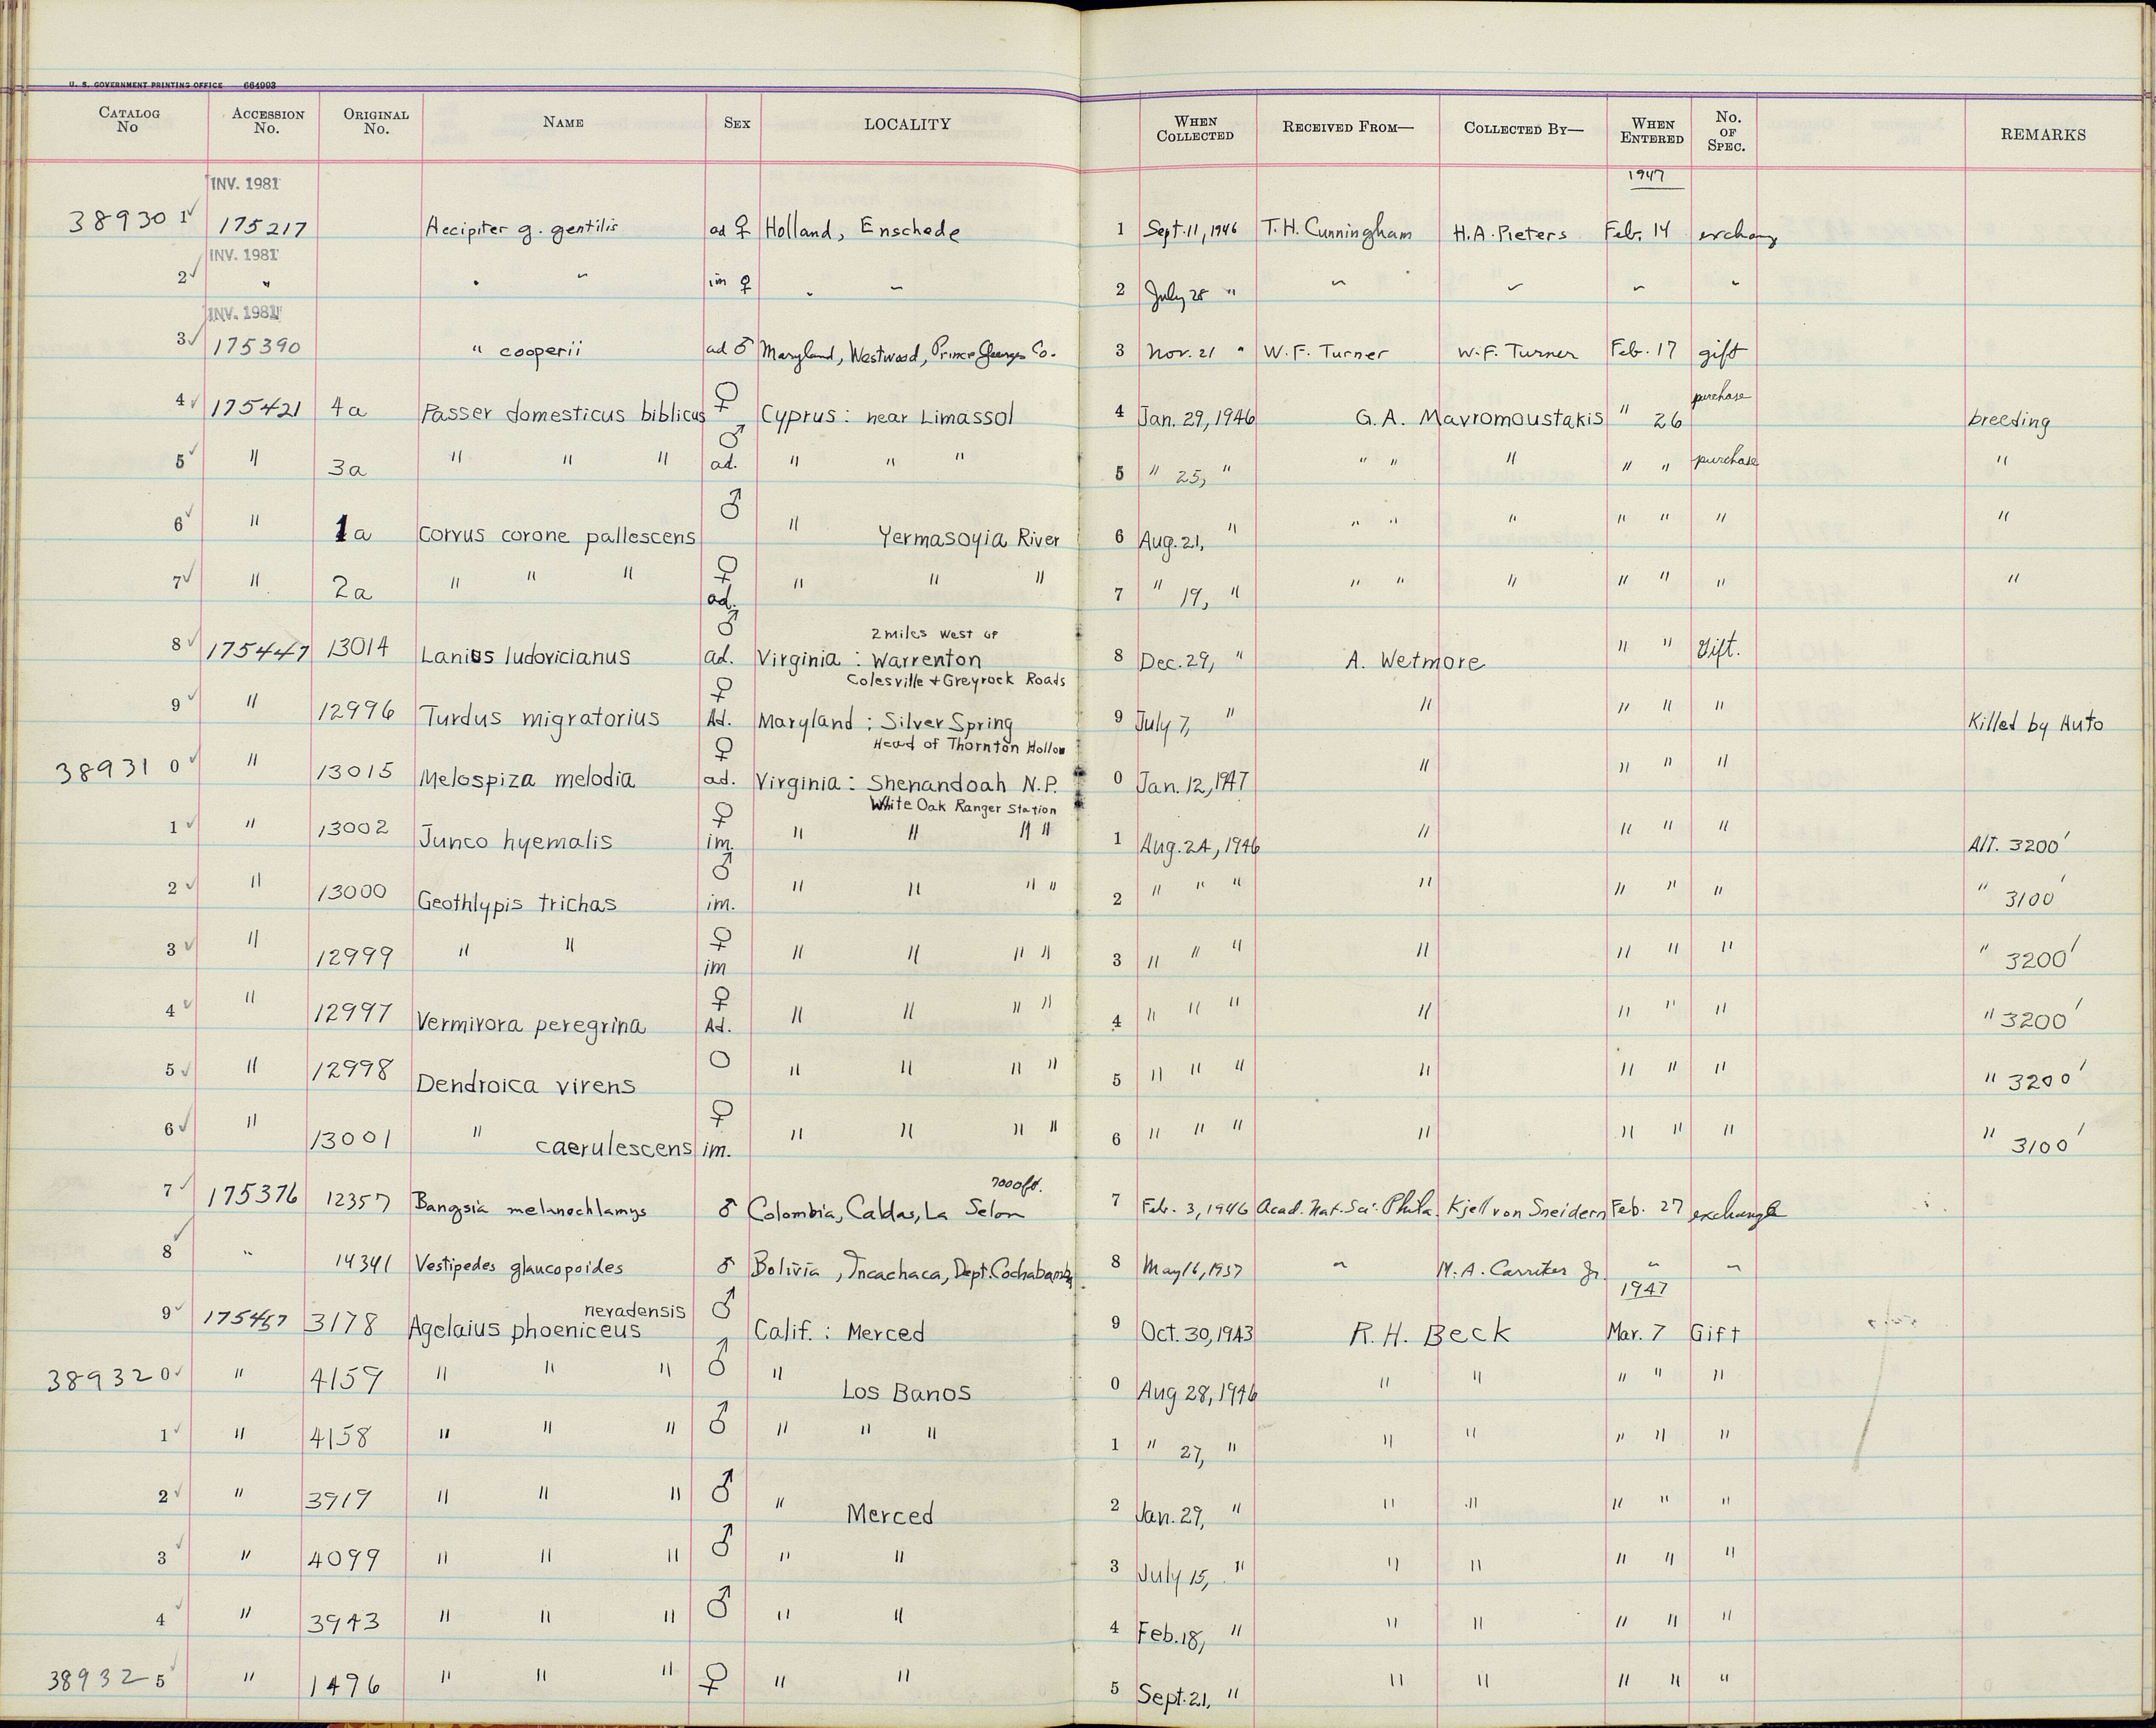 U. S. GOVERNMENT PRINTING OFFICE 664993
CATALOG No ACCESSION No. ORIGINAL No. NAME SEX LOCALITY WHEN COLLECTED RECEIVED FROM— COLLECTED BY— WHEN ENTERED No. OF SPEC. REMARKS
INV. 1981 1947
38930 1 175217 Accipiter g. gentilis ad ♀ Holland, Enschede 1 Sept. 11, 1946 T.H. Cunningham H.A. Pieters Feb. 14 exchang
INV. 1981
2 " " " im ♀ " " 2 July 28 " " " " "
INV. 1981
3 175390 " cooperii ad ♂ Maryland, Westwood, Prince Georges Co. 3 Nov. 21 " W.F. Turner W.F. Turner Feb. 17 gift
4 175421 4a Passer domesticus biblicus ♀ Cyprus: near Limassol 4 Jan. 29, 1946 G.A. Mavromoustakis " 26 purchase breeding
5 " 3a " " " ♂ ad. " " " 5 " 25, " " " " " " purchase "
6 " 1a Corvus corone pallescens ♂ " Yermasoyia River 6 Aug. 21, " " " " " " " "
7 " 2a " " " ♀ ad. " " " 7 " 19, " " " " " " " "
2 miles West of
8 175447 13014 Lanius ludovicianus ♂ ad. Virginia : Warrenton 8 Dec. 29, " A. Wetmore " " Gift.
Colesville + Greyrock Roads
9 " 12996 Turdus migratorius ♀ Ad. Maryland ; Silver Spring 9 July 7, " " " " " Killed by Auto
Head of Thornton Hollow
38931 0 " 13015 Melospiza melodia ♀ ad. Virginia : Shenandoah N.P. 0 Jan. 12, 1947 " " " "
White Oak Ranger Station
1 " 13002 Junco hyemalis ♀ im. " " " " 1 Aug. 24, 1946 " " " " Alt. 3200'
2 " 13000 Geothlypis trichas ♂ im. " " " " 2 " " " " " " " " 3100'
3 " 12999 " " ♀ im " " " " 3 " " " " " " " " 3200'
4 " 12997 Vermivora peregrina ♀ Ad. " " " " 4 " " " " " " " " 3200'
5 " 12998 Dendroica virens O " " " " 5 " " " " " " " " 3200'
6 " 13001 " caerulescens ♀ im. " " " " 6 " " " " " " " " 3100'
7000ft.
7 175376 12357 Bangsia melanochlamys ♂ Colombia, Caldas, La Selon 7 Feb. 3, 1946 Acad. Nat. Sci. Phila. Kjell von Sneidern Feb. 27 exchange
8 " 14341 Vestipedes glaucopoides ♂ Bolivia, Incachaca, Dept. Cochabamba 8 May 16, 1937 " M.A. Carriker Jr. " "
nevadensis 1947
9 175457 3178 Agelaius phoeniceus ♂ Calif. : Merced 9 Oct. 30, 1943 R.H. Beck Mar. 7 Gift
38932 0 " 4159 " " " ♂ " Los Banos 0 Aug 28, 1946 " " " " "
1 " 4158 " " " ♂ " " " 1 " 27, " " " " " "
2 " 3919 " " " ♂ " Merced 2 Jan. 29, " " " " " "
3 " 4099 " " " ♂ " " 3 July 15, " " " " " "
4 " 3943 " " " ♂ " " 4 Feb. 18, " " " " " "
38932 5 " 1496 " " " ♀ " " 5 Sept. 21, " " " " " "